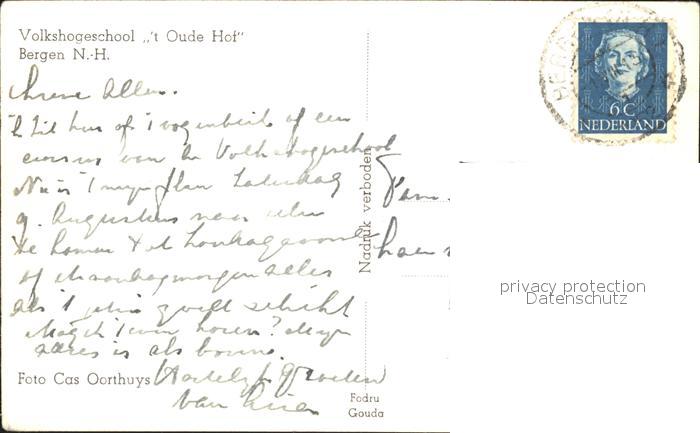 Volkshogeschool „'t Oude Hof"
Bergen N.-H.
Allen.
'k Zit hier op 't ogenblik op een
cursus van de Volkshogeschool
Nu is 't mijn plan Zaterdag
9 Augustus naar
te komen tot
of maandagmorgen alles
als 't schikt
Mag ik 't even horen? Mijn
adres is als boven.
Hartelijke groeten
van
Foto Cas Oorthuys
Nadruk verboden
Fodru
Gouda
Fam.
6 C
NEDERLAND
privacy protection
Datenschutz